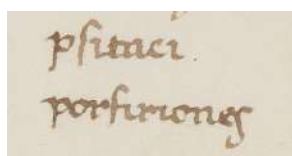 psitaci.
porfiriones